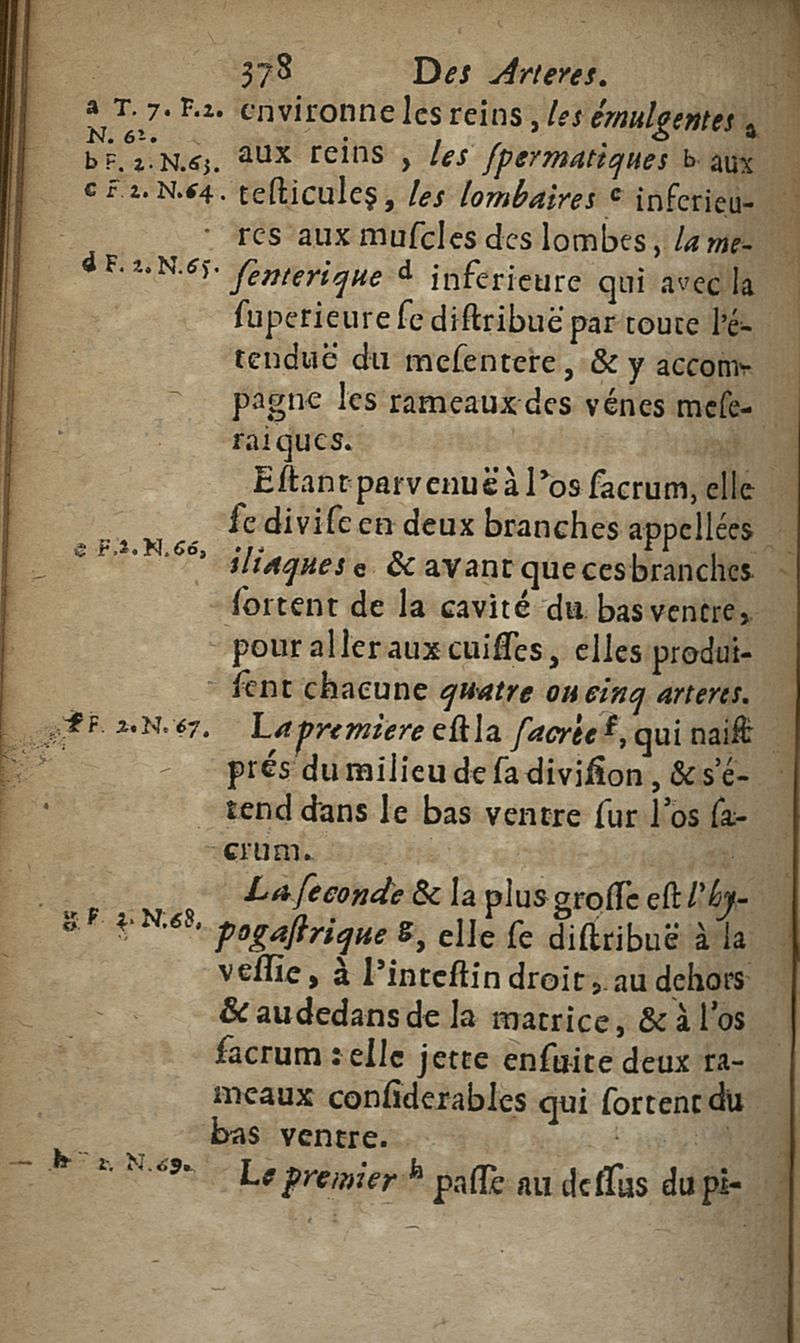 378 Des Arteres.
a T. 7. F.2.
N. 62.
b F. 2. N.63.
c F. 2. N.64.
d F. 2. N.65.
e F.2. N.66,
f F. 2. N. 67.
g F 2. N.68.
h 2. N.69.
environne les reins, les émulgentes a
aux reins, les ſpermatiques b aux
teſticules, les lombaires c inferieu-
res aux muſcles des lombes, la me-
ſenterique d inferieure qui avec la
ſuperieure ſe diſtribuë par toute l'é-
tenduë du meſentere, & y accom-
pagne les rameaux des vénes meſe-
raiques.
Eſtant parvenuë à l'os ſacrum, elle
ſe diviſe en deux branches appellées
iliaques e & avant que ces branches
ſortent de la cavité du bas ventre,
pour aller aux cuiſſes, elles produi-
ſent chacune quatre ou cinq arteres.
La premiere eſt la ſacrée f, qui naiſt
prés du milieu de ſa diviſion, & s'é-
tend dans le bas ventre ſur l'os ſa-
crum.
La ſeconde & la plus groſſe eſt l'hy-
pogaſtrique g, elle ſe diſtribuë à la
veſſie, à l'inteſtin droit, au dehors
& au dedans de la matrice, & à l'os
ſacrum : elle jette enſuite deux ra-
meaux conſiderables qui ſortent du
bas ventre.
Le premier h paſſe au deſſus du pi-